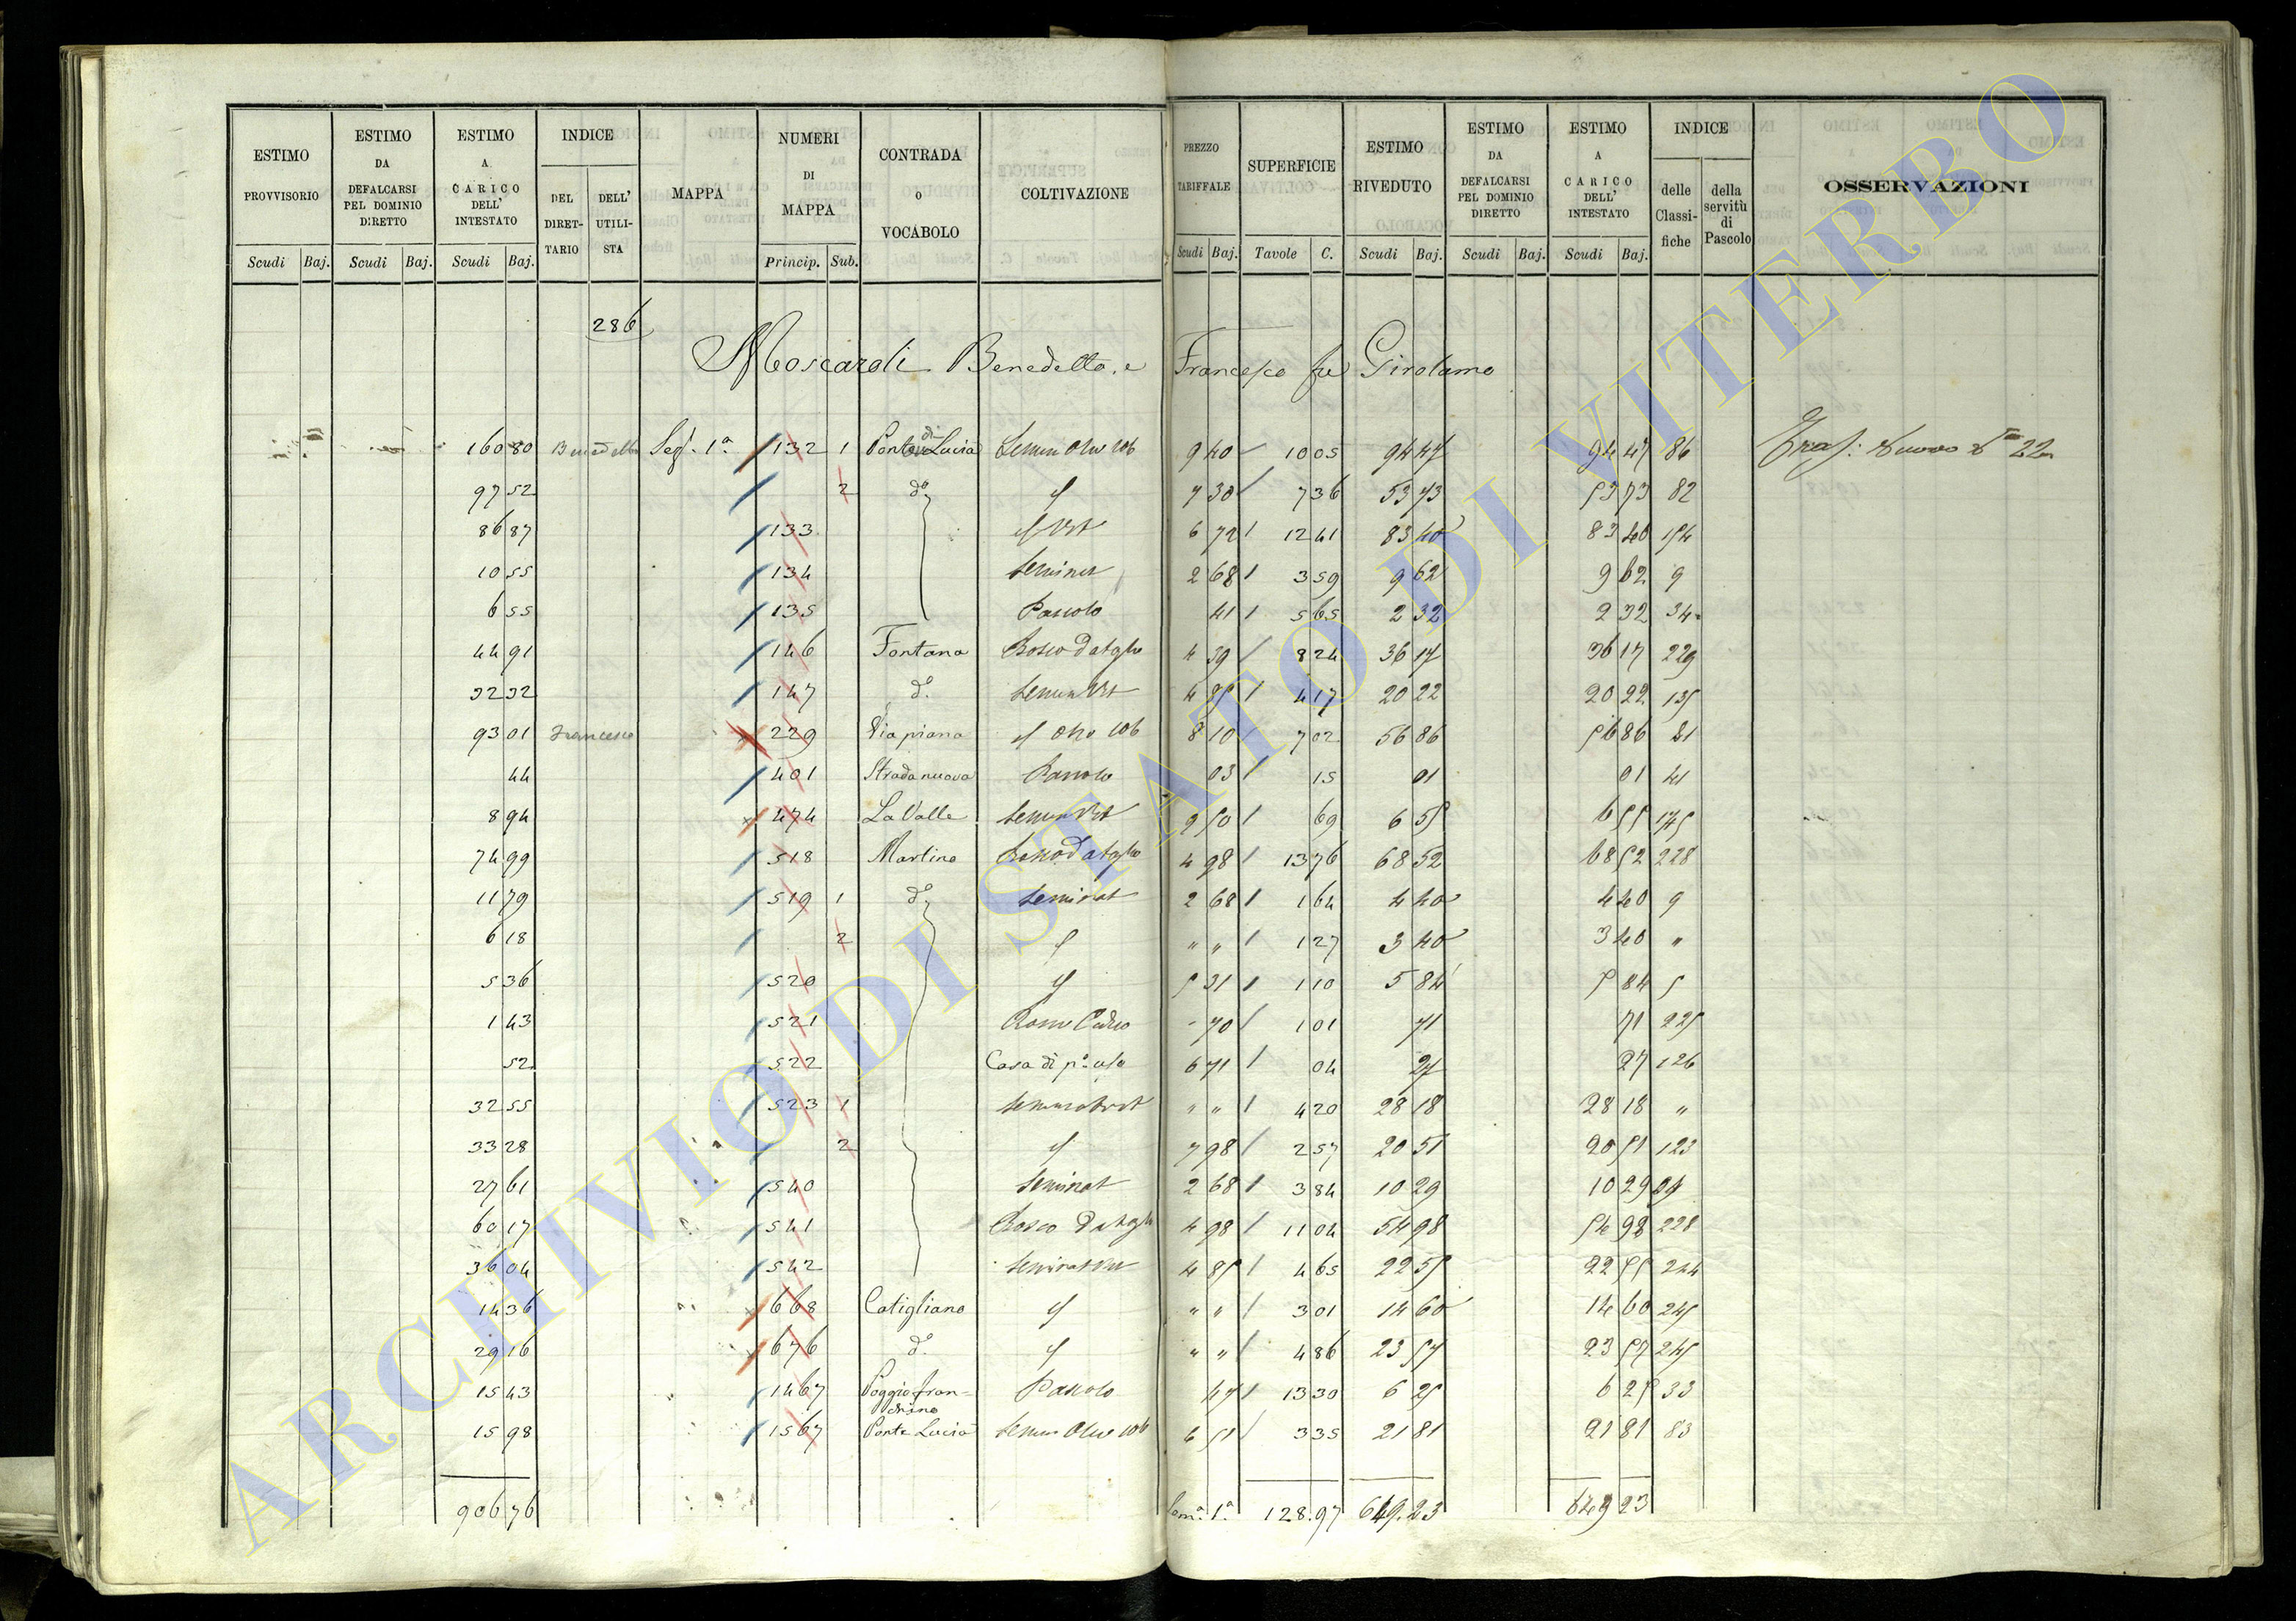 ESTIMO PROVVISORIO Scudi Baj. ESTIMO DA DEFALCARSI PEL DOMINIO DIRETTO Scudi Baj. ESTIMO A CARICO DELL' INTESTATO Scudi Baj. INDICE DEL DIRETTARIO DELL' UTILISTA MAPPA NUMERI DI MAPPA Princip. Sub. CONTRADA o VOCABOLO COLTIVAZIONE PREZZO TARIFFALE Scudi Baj. SUPERFICIE Tavole C. ESTIMO RIVEDUTO Scudi Baj. ESTIMO DA DEFALCARSI PEL DOMINIO DIRETTO Scudi Baj. ESTIMO A CARICO DELL' INTESTATO Scudi Baj. INDICE delle Classifiche della servitù di Pascolo OSSERVAZIONI
286
Moscaroli Benedetto, e Francesco fu Girolamo
160 80 Benedetto Sez. 1a 132 1 Ponte di Lucia Semin Oliv 9 40 10 05 94 47 94 47 86 22
97 52 2 do 7 30 7 36 53 73 53 73 82
86 87 133 6 72 12 41 83 40 83 40 154
10 55 134 Seminat 2 68 3 59 9 62 9 62 9
6 55 135 Pascolo 41 5 65 2 32 2 32 34
44 91 146 Fontana Bosco da taglio 4 39 8 24 36 17 36 17 229
32 32 147 do 4 85 4 17 20 22 20 22 135
93 01 Francesco 229 Via piana 8 10 7 02 56 86 56 86 81
44 401 Strada nuova Pascolo 03 15 01 01 41
8 94 474 La Valle 9 50 69 6 55 6 55 145
74 99 518 Martino Bosco da taglio 4 98 13 76 68 52 68 52 228
11 79 519 1 do Seminat 2 68 1 64 4 40 4 40 9
6 18 2 " " 1 27 3 40 3 40 "
5 36 520 5 31 1 10 5 84 5 84 5
1 43 521 - 70 1 01 71 71 225
52 522 Casa di po uso 6 71 04 27 27 126
32 55 523 1 " " 4 20 28 18 28 18 "
33 28 2 7 98 2 57 20 51 20 51 123
27 61 540 Seminat 2 68 3 84 10 29 10 29 09
60 17 541 Bosco da taglio 4 98 11 04 54 98 54 98 228
36 04 542 4 85 4 65 22 55 22 55 244
14 36 668 Catigliano " " 3 01 14 60 14 60 245
29 16 676 do " " 4 86 23 57 23 57 245
15 43 1467 Poggio fran- Pascolo 47 13 30 6 25 6 25 33
15 98 1567 Ponte Lucia 6 51 3 35 21 81 21 81 83
906 76 Som.a 1.a 128.97 649.23 649 23
ARCHIVIO DI STATO DI VITERBO